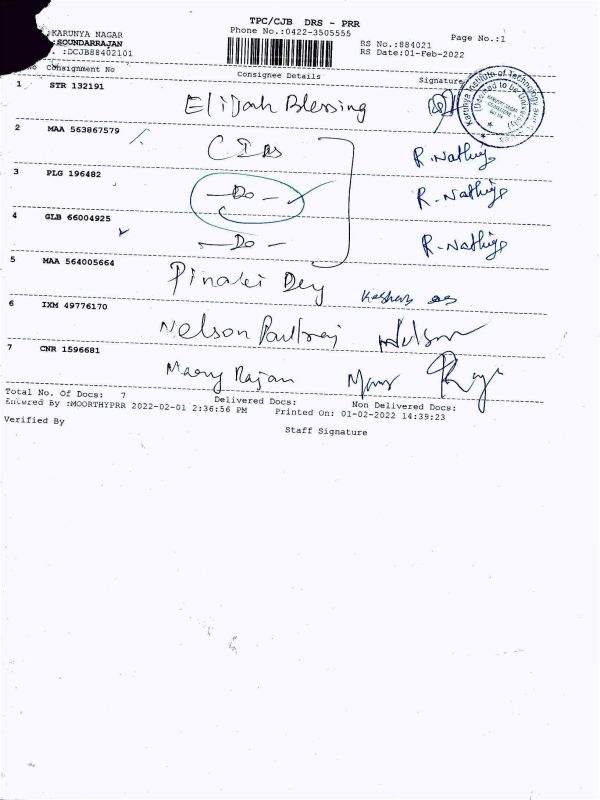 TPC/CJB DRS - PRR
:KARUNYA NAGAR
Phone No.:0422-3505555
Page No.:1
:SOUNDARRAJAN
RS No.:884021
.:DCJB88402101
RS Date:01-Feb-2022
No Consignment No
Consignee Details
Signature
1 STR 132191 Elijah Blessing
Karunya Institute of Technology and
(Deemed to be University)
2 MAA 563867579 R. Nathiya
3 PLG 196482 —Do— R. Nathiya
4 GLB 66004925 —Do— R. Nathiya
5 MAA 564005664 Pinaki Dey
6 IXM 49776170 Nelson Paulraj Nelson
7 CNR 1596681 Mary Rajan
Total No. Of Docs: 7
Delivered Docs:
Non Delivered Docs:
Entered By :MOORTHYPRR 2022-02-01 2:36:56 PM
Printed On: 01-02-2022 14:39:23
Verified By
Staff Signature